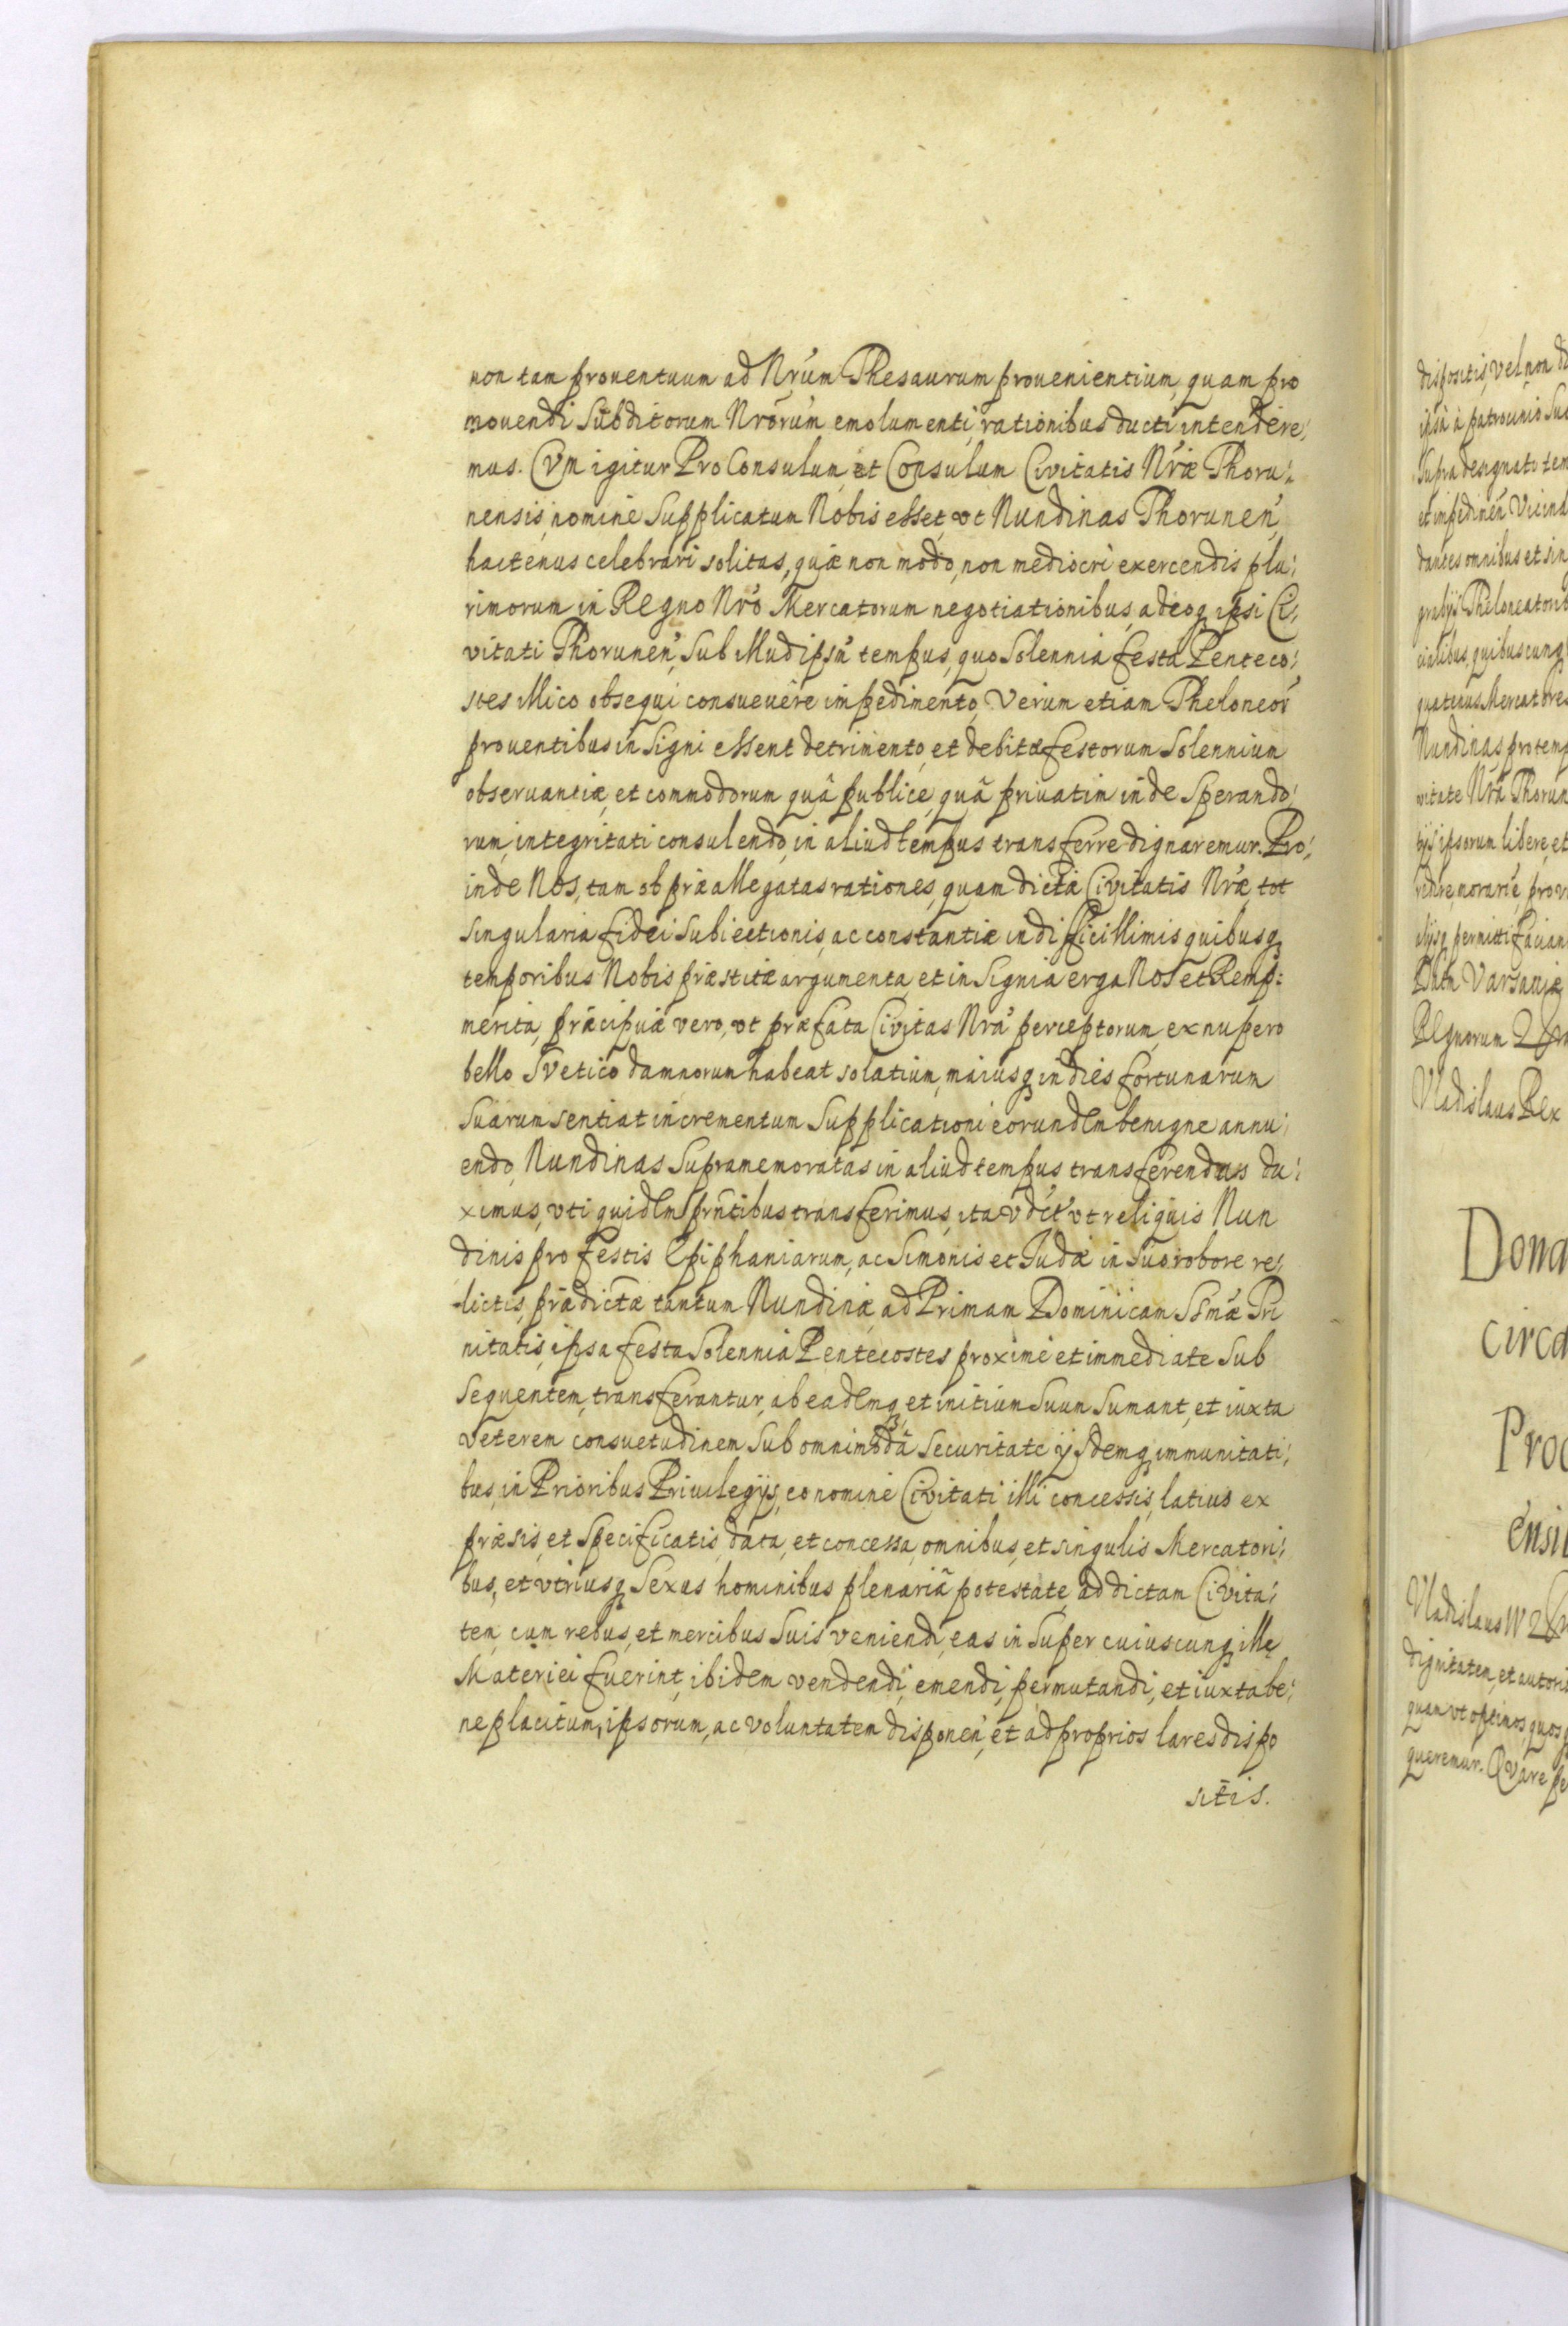 non tam prouentuum ad Nrúm Thesaurum prouenientium, quam pro
mouendi Subditorum Nrorúm emolumenti rationibus ducti intendere,
mus. CVm igitur ProConsulum, et Consulum Civitatis Nráe Thoru,
nensis, nomine Supplicatum Nobis esset, vt Nundinas Thorunen,
hactenus celebrari solitas, quæ non modo, non mediocri exercendis plu,
rimorum in Regno Nró Mercatorum negotiationibus, adeoq ipsi Ci,
vitati Thorunen, Sub illud ipsú tempus, quo Solennia festa Penteco,
stes illico obsequi consueuere impedimento, Verum etiam Theloneor
prouentibus insigni essent detrimento, et debitæ festorum Solennium
obseruantiæ, et commodorum quâ publice, quâ priuatim inde Sperando,
rum, integritati consulendo, in aliud tempus transferre dignaremur. Pro,
inde Nos, tam ob præallegatas rationes, quam dictæ Civitatis Nræ, tot
singularia fidei Subiectionis, ac constantiæ in difficillimis quibusq
temporibus Nobis præstitæ argumenta, et insignia erga Nos et Remp:
merita, præcipuæ vero, vt præfata Civitas Nrá perceptorum, ex nupero
bello Svetico damnorum habeat solatium, maiusq in dies fortunarum
Suarum sentiat incrementum Supplicationi eorundem benigne annu,
endo, Nundinas Supramemoratas in aliud tempus transferendas du,
ximus, vti quidem prntibus transferimus, ita vdct vt reliquis Nun
dinis pro festis Epiphaniarum, ac Simonis et Judæ in Suo robore re,
lictis, prædictæ tantum Nundinæ, ad Primam Dominicam Ssmæ Tri
nitatis, ipsa festa Solennia Pentecostes proxime et immediate Sub
Sequentem, transferantur, ab eademq, et initium Suum Sumant, et iuxta
veterem consuetudinem Sub omnimodâ Securitate ijsdemq immunitati,
bus, in Prioribus Priuilegijs, eo nomine Civitati illi concessis, latius ex
præsis, et Specificatis, data, et concessa, omnibus, et singulis Mercatori,
bus, et vtriusq Sexus hominibus plenariâ potestate, ad dictam Civita,
tem, cum rebus, et mercibus Suis veniendi, eas in Super cuiuscunq illæ
Materiei fuerint, ibidem vendendi, emendi, permutandi, et iuxta be,
neplacitum, ipsorum, ac voluntatem disponen, et ad proprios lares dispo
sitis.
dispositis, vel non
ipsâ à patrocinio
Supra designati
et impedimen Vicin
dantes omnibus et sin
Theloneator
cialibus, quibuscunq
quatenus Mercatores
Nundinas pro temp
vitate Nrâ Thorun
ipsorum libere, et
morari, prov
permitti facian
Datn Varsaniæ
Regnorum
Vladislaus Rex
Dona
circa
Proc
ensi
Vladislaus IV
dignitatem, et autori
quam vt optimos, quos
queremur. QVare pe